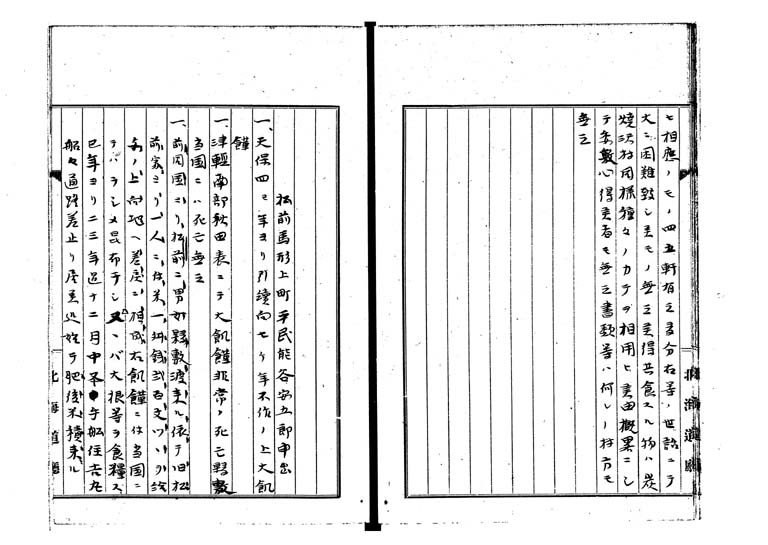 ヒ相應ノモノ四五軒有之多分右等ノ世話ニテ
大ニ困難致シ候モノ無之候得共食スル物ハ炭
焼沢村同様種々ノカテヲ相用ヒ候由概畧ニシ
テ委敷心得候者モ無之書類等ハ何レノ村方モ
無之
松前馬形上町平民能谷安五郎申出
一、天保四巳年ヨリ引續向七ケ年不作ノ上大飢
饉
一、津軽南部秋田表ニテ大飢饉非常ノ死亡夥敷
当国ニハ死亡無之
一、前同国ヨリ松前ニ男女夥敷渡来ル依テ旧松
前家ヨリ一人ニ付米一升銭弐百文ツヽ引給
ヘノ上向地ヘ差戻ニ相成右飢饉ニ付当国ニ
テハ
シメ昆布
シ又ハ大根等ヲ食糧ス
巳年ヨリ二三年過十二月中
手船住吉丸
船々通路差止リ居候処始テ肥後米積来ル
北海道廳
北海道廳